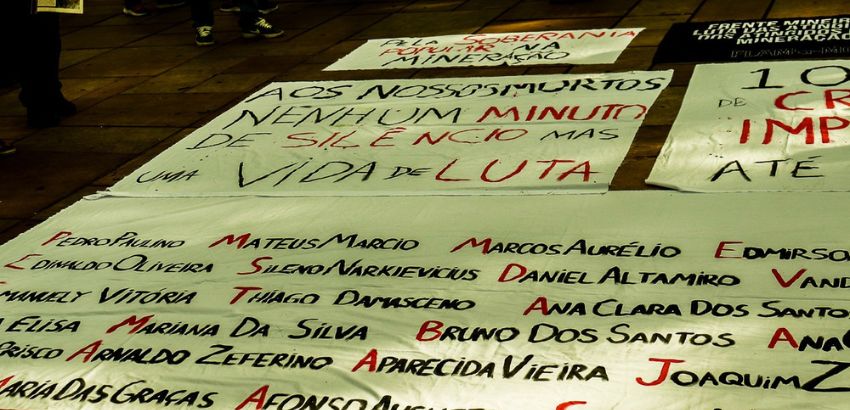 PELA SOBERANIA
POPULAR NA
MINERAÇÃO
FRENTE MINEIRA
LUTA DAS ATINGI
DOS ATINGIDOS
MINERAÇÃO
FLAMA-MG
AOS NOSSOS MORTOS
NENHUM MINUTO
DE SILÊNCIO MAS
UMA VIDA DE LUTA
10
DE CR
IMP
ATÉ
PEDRO PAULINO MATEUS MARCIO MARCOS AURÉLIO EDMIRSO
EDINALDO OLIVEIRA SILENO NARKIEVICIUS DANIEL ALTAMIRO VAND
EMANUELY VITÓRIA THIAGO DAMASCENO ANA CLARA DOS SANTOS
ELISA MARIANA DA SILVA BRUNO DOS SANTOS ANA
PRISCO ARNALDO ZEFERINO APARECIDA VIEIRA JOAQUIM Z
MARIA DAS GRAÇAS AFONSO AUGUS